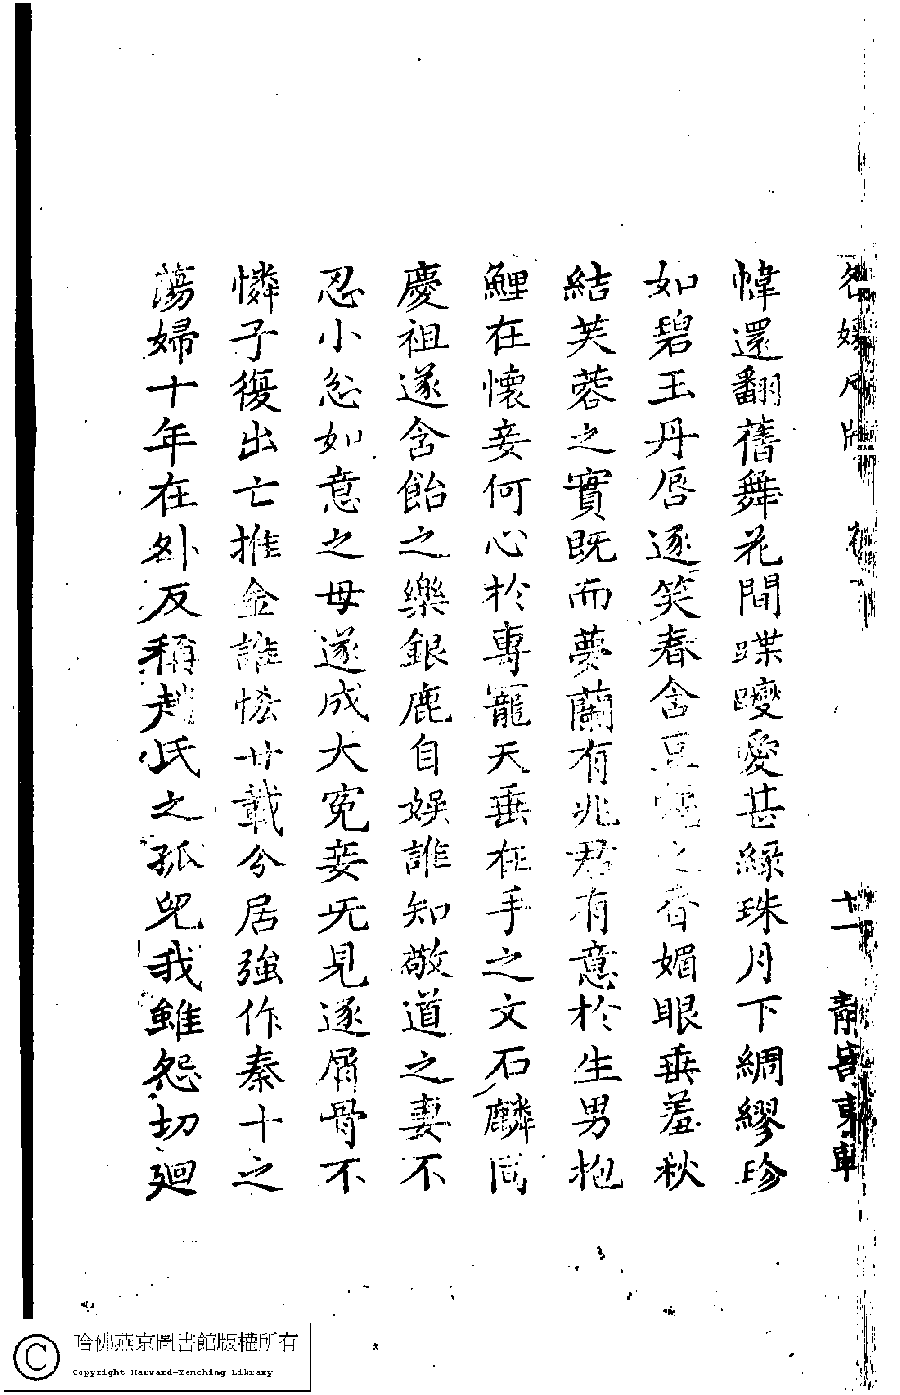 幃還翻舊舞花間蹀躞愛甚綠珠月下綢繆珍
如碧玉丹唇逐笑春含豆蔻之香媚眼垂羞秋
結芙蓉之實既而夢蘭有兆君有意於生男抱
鯉在懷妾何心於專寵天垂在手之文石麟同
慶祖遂含飴之樂銀鹿自娛誰知敬道之妻不
忍小忿如意之母遂成大冤妾旡見逐屑骨不
憐子復出亡推金誰恡廿載兮居強作秦十之
蕩婦十年在外反稱趙氏之孤兒我雖怨切廻
十一
哈佛燕京圖書館版權所有
Copyright Harvard-Yenching Library